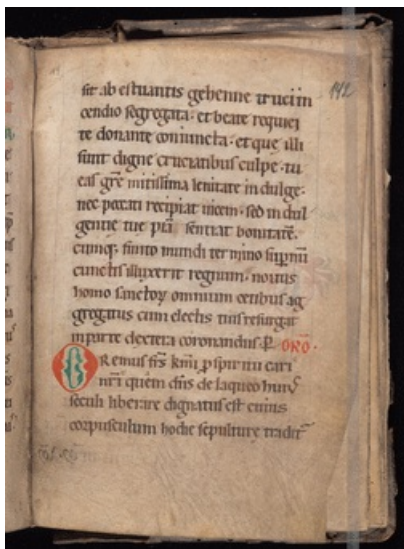 142
sit ab estuantis gehenne truci in
cendio segregata · et beate requiei
te donante coniuncta · et que illi
sunt digne cruciatibus culpe · tu
eas grē mitissima lenitate indulge ·
nec peccati recipiat uicem · sed indul
gentie tue piā sentiat bonitatē.
cumq; finito mundi termino supnū
cunctis illuxerit regnum · nouus
homo sanctoꝝ omnium cetibus ag
gregatus cum electis tuis resurgat
in parte dextera coronandus · P̄. ORŌ ·
Oremus frs̄ kmi ꝓ spū cari
nr̄i quem dn̄s de laqueo huiꝰ
seculi liberare dignatus est cuius
corpusculum hodie sepulture tradit᷑